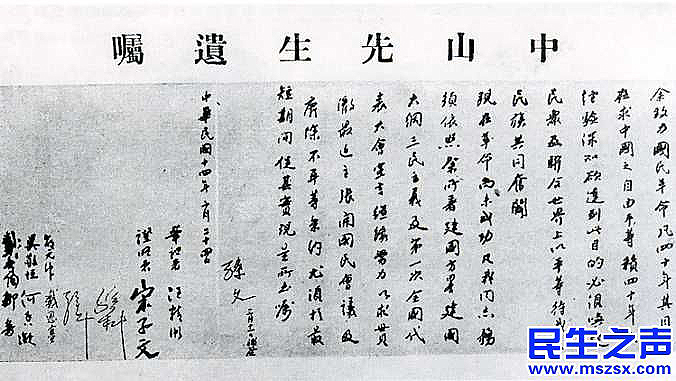 中山先生遺囑
余致力國民革命凡四十年其目
在求中國之自由平等積四十年
經驗深知欲達到此目的必須喚
民衆及聯合世界上以平等待我
民族共同奮鬭
現在革命尚未成功凡我同志務
須依照余所著建國方畧建國
大綱三民主義及第一次全國代
表大會宣言繼續努力以求貫
澈最近主張開國民會議及
廢除不平等條約尤須於最
短期間促其實現是所至囑
孫文 三月十一日補簽
中華民國十四年二月二十四日
筆記者 汪精衛
證明者 宋子文
孫科
邵元冲 戴恩賽
吳敬恆 何香凝
鄒魯
民生之声
www.mszsx.com